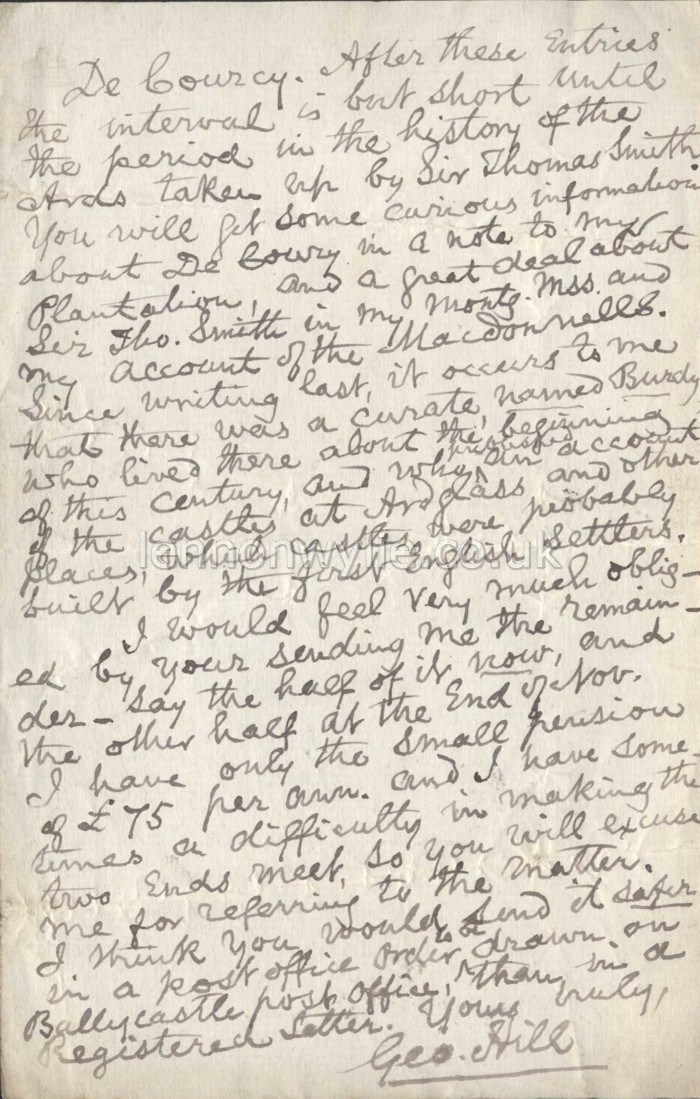 De Courcy. After these Entries
the interval is but short until
the period in the history of the
Ards taken up by Sir Thomas Smith
You will get some curious information
about De Courcy in a note to my
Plantation, and a great deal about
Sir Tho. Smith in my Montg. Mss. and
my account of the MacDonnells.
Since writing last, it occurs to me
that there was a curate, named Burdy
who lived there about the beginning
of this century, and who published an account
of the castles at Ardglass and other
places, which castles were probably
built by the first English Settlers.
I would feel very much oblig-
ed by your sending me the remain-
der – say the half of it now, and
the other half at the End of Nov.
I have only the small pension
of £75 per ann. and I have some-
times a difficulty in making the
two Ends meet, so you will excuse
me for referring to the matter.
I think you would send it safer
in a post office order, drawn on
Ballycastle post office, than in a
Registered Letter. Yours truly,
Geo. Hill
lennonwylie.co.uk